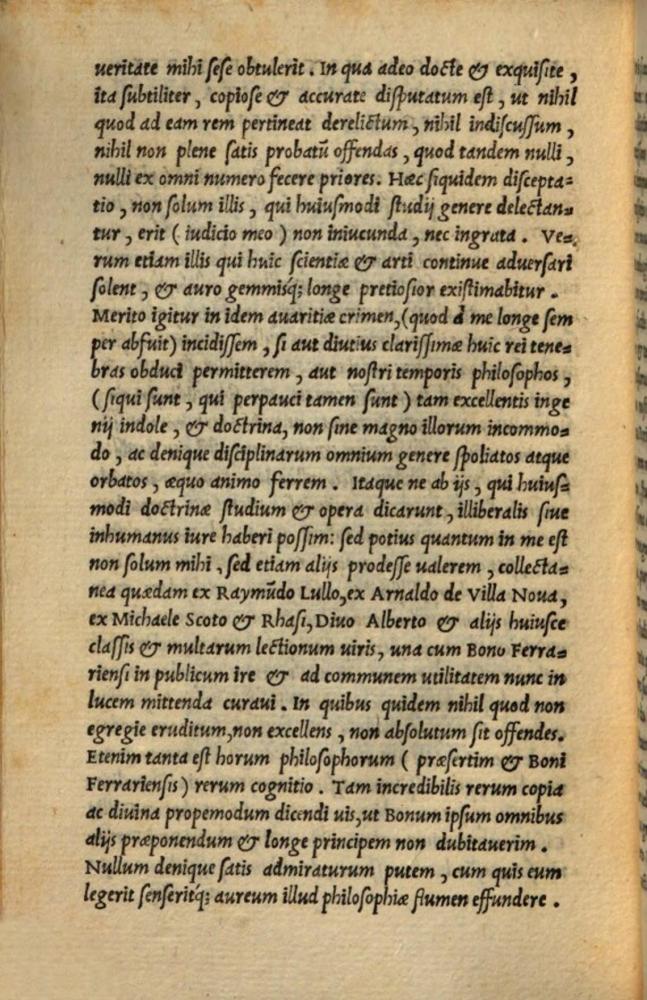 ueritate mihi sese obtulerit. In qua adeo docte & exquisite,
ita subtiliter, copiose & accurate disputatum est, ut nihil
quod ad eam rem pertineat derelictum, nihil indiscussum,
nihil non plene satis probatũ offendas, quod tandem nulli,
nulli ex omni numero fecere priores. Hæc siquidem discepta=
tio, non solum illis, qui huiusmodi studij genere delectan=
tur, erit (iudicio meo) non iniucunda, nec ingrata. Ve=
rum etiam illis qui huic scientiæ & arti continue aduersari
solent, & auro gemmisq́; longe pretiosior existimabitur.
Merito igitur in idem auaritiæ crimen, (quod à me longe sem
per abfuit) incidissem, si aut diutius clarissimæ huic rei tene=
bras obduci permitterem, aut nostri temporis philosophos,
(siqui sunt, qui perpauci tamen sunt) tam excellentis inge
nij indole, & doctrina, non sine magno illorum incommo=
do, ac denique disciplinarum omnium genere spoliatos atque
orbatos, æquo animo ferrem. Itaque ne ab ijs, qui huius=
modi doctrinæ studium & opera dicarunt, illiberalis siue
inhumanus iure haberi possim: sed potius quantum in me est
non solum mihi, sed etiam alijs prodesse ualerem, collecta=
nea quædam ex Raymũdo Lullo, ex Arnaldo de Villa Noua,
ex Michaele Scoto & Rhasi, Diuo Alberto & alijs huiusce
classis & multarum lectionum uiris, una cum Bono Ferra=
riensi in publicum ire & ad communem utilitatem nunc in
lucem mittenda curaui. In quibus quidem nihil quod non
egregie eruditum, non excellens, non absolutum sit offendes.
Etenim tanta est horum philosophorum (præsertim & Boni
Ferrariensis) rerum cognitio. Tam incredibilis rerum copia
ac diuina propemodum dicendi uis, ut Bonum ipsum omnibus
alijs præponendum & longe principem non dubitauerim.
Nullum denique satis admiraturum putem, cum quis eum
legerit senseritq́; aureum illud philosophiæ flumen effundere.